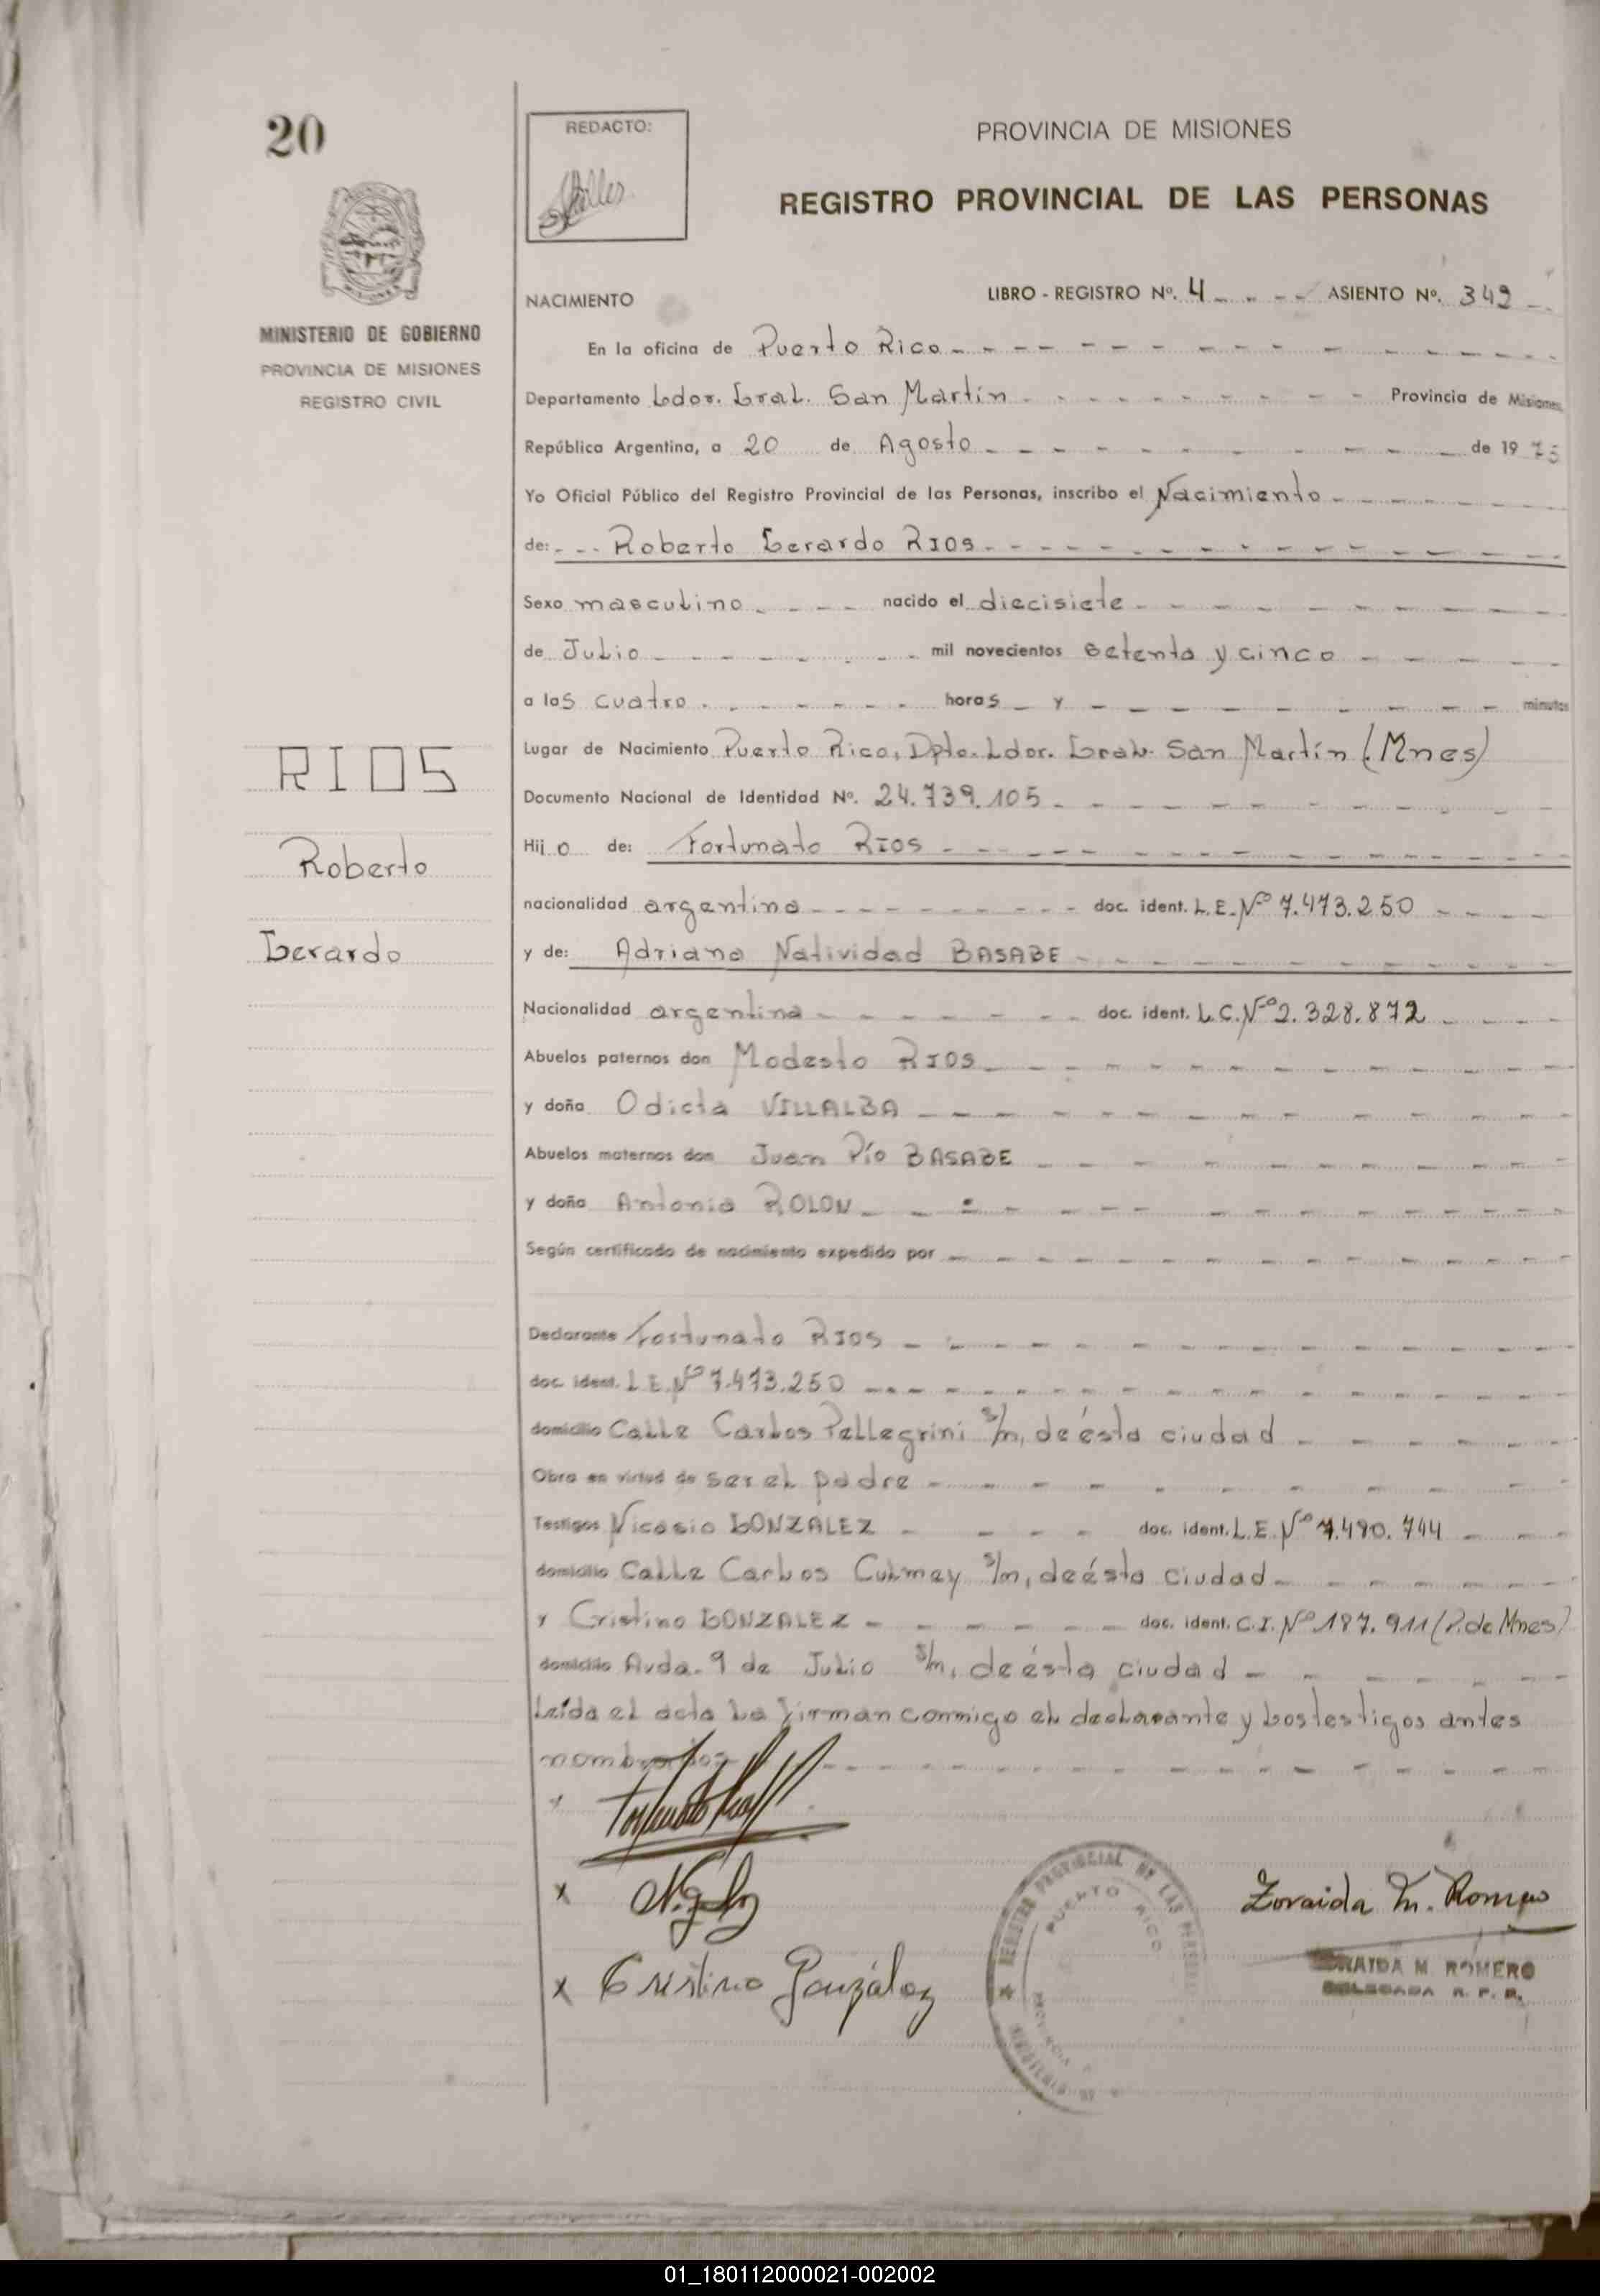 20
REDACTO:
PROVINCIA DE MISIONES
REGISTRO PROVINCIAL DE LAS PERSONAS
MISIONES
MINISTERIO DE GOBIERNO
PROVINCIA DE MISIONES
REGISTRO CIVIL
NACIMIENTO
LIBRO - REGISTRO Nº. 4 ASIENTO Nº. 349
En la oficina de Puerto Rico
Departamento Ldor. Gral. San Martín Provincia de Misiones,
República Argentina, a 20 de Agosto de 1975
Yo Oficial Público del Registro Provincial de las Personas, inscribo el Nacimiento
de: Roberto Gerardo RIOS
Sexo masculino nacido el diecisiete
de Julio mil novecientos setenta y cinco
a las cuatro horas y minutos
Lugar de Nacimiento Puerto Rico, Dpto. Ldor. Gral. San Martín (Mnes)
RIOS
Roberto
Gerardo
Documento Nacional de Identidad Nº. 24.739.105
Hijo de: Fortunato RIOS
nacionalidad argentina doc. ident. L.E. Nº 7.473.250
y de: Adriana Natividad BASABE
Nacionalidad argentina doc. ident. L.C. Nº 2.328.872
Abuelos paternos don Modesto RIOS
y doña Odicta VILLALBA
Abuelos maternos don Juan Pío BASABE
y doña Antonia ROLON
Según certificado de nacimiento expedido por
Declarante Fortunato RIOS
doc. ident. L.E. Nº 7.473.250
domicilio Calle Carlos Pellegrini s/n, de ésta ciudad
Obra en virtud de ser el padre
Testigos Nicasio GONZALEZ doc. ident. L.E. Nº 7.490.744
domicilio Calle Carlos Culmey s/n, de ésta ciudad
y Cristino GONZALEZ doc. ident. C.I. Nº 187.911 (P. de Mnes)
domicilio Avda. 9 de Julio s/n, de ésta ciudad
Leída el acta la firman conmigo el declarante y los testigos antes
nombrados
x
x Cristino González
REGISTRO PROVINCIAL DE LAS PERSONAS
PUERTO RICO
Zoraida M. Romero
ZORAIDA M. ROMERO
DELEGADA R. P. P.
01_180112000021-002002